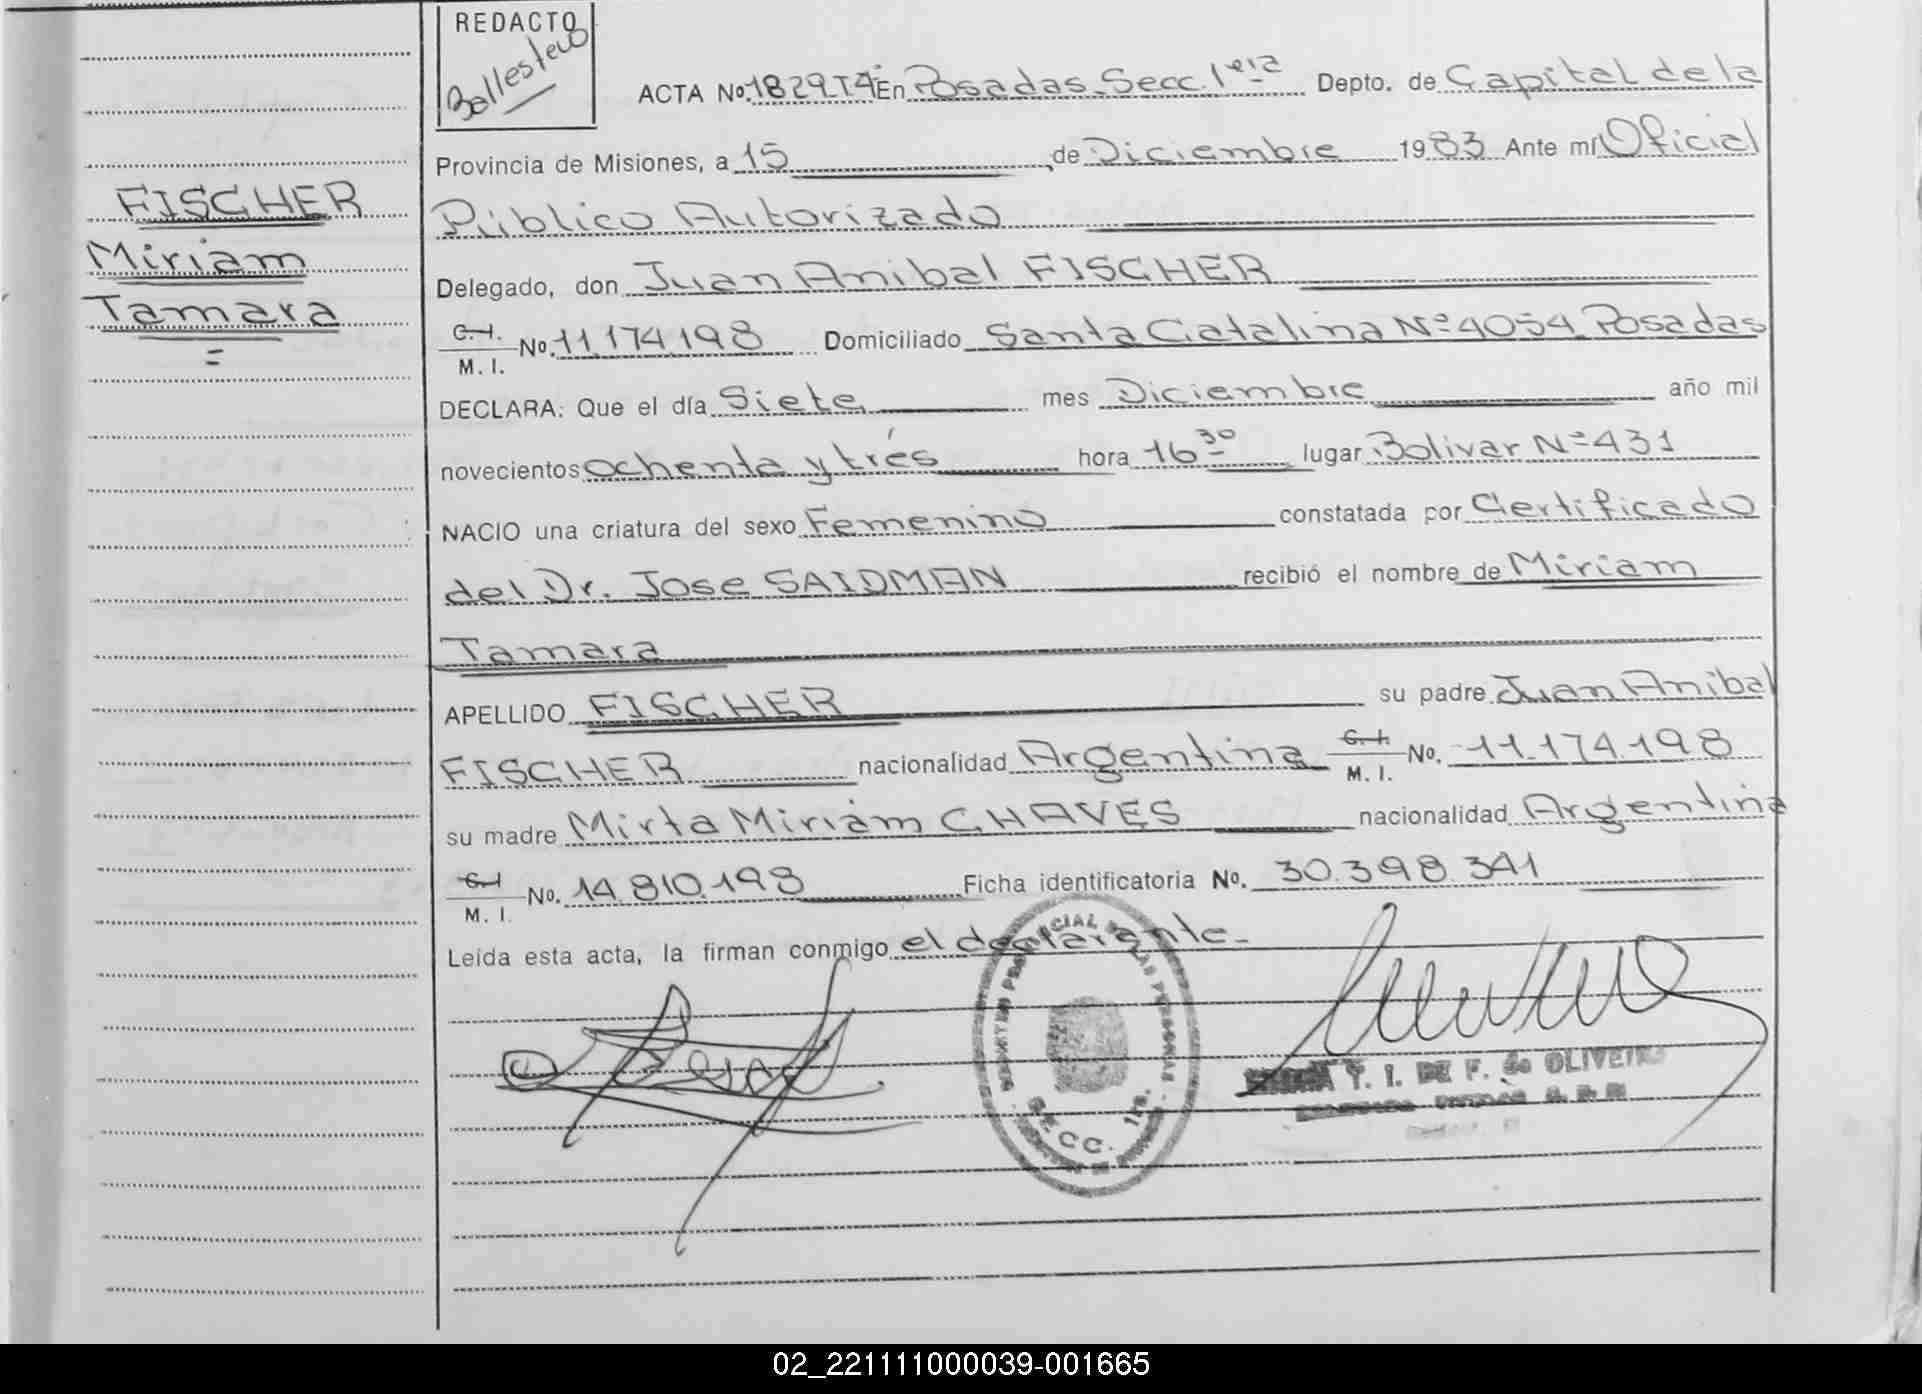 REDACTO
Ballestero
ACTA No. 1829 T4º En Posadas. Secc. 1era Depto. de Capital de la
Provincia de Misiones, a 15 de Diciembre 1983 Ante mí Oficial
Público Autorizado
Delegado, don Juan Anibal FISCHER
C. I. No. 11.174.198 Domiciliado Santa Catalina Nº 4054 Posadas
M. I.
DECLARA: Que el día Siete mes Diciembre año mil
novecientos ochenta y trés hora 16 30 lugar Bolivar Nº 431
NACIO una criatura del sexo Femenino constatada por Certificado
del Dr. Jose SAIDMAN recibió el nombre de Miriam
Tamara
APELLIDO FISCHER su padre Juan Anibal
FISCHER nacionalidad Argentina C. I. No. 11.174.198
M. I.
su madre Mirta Miriam CHAVES nacionalidad Argentina
C. I. No. 14.810.193 Ficha identificatoria No. 30.398.341
M. I.
Leída esta acta, la firman conmigo el declarante.-
FISCHER
Miriam
Tamara
=
SECC. 1ra.
T. I. DE F. de OLIVEIRA
02_221111000039-001665